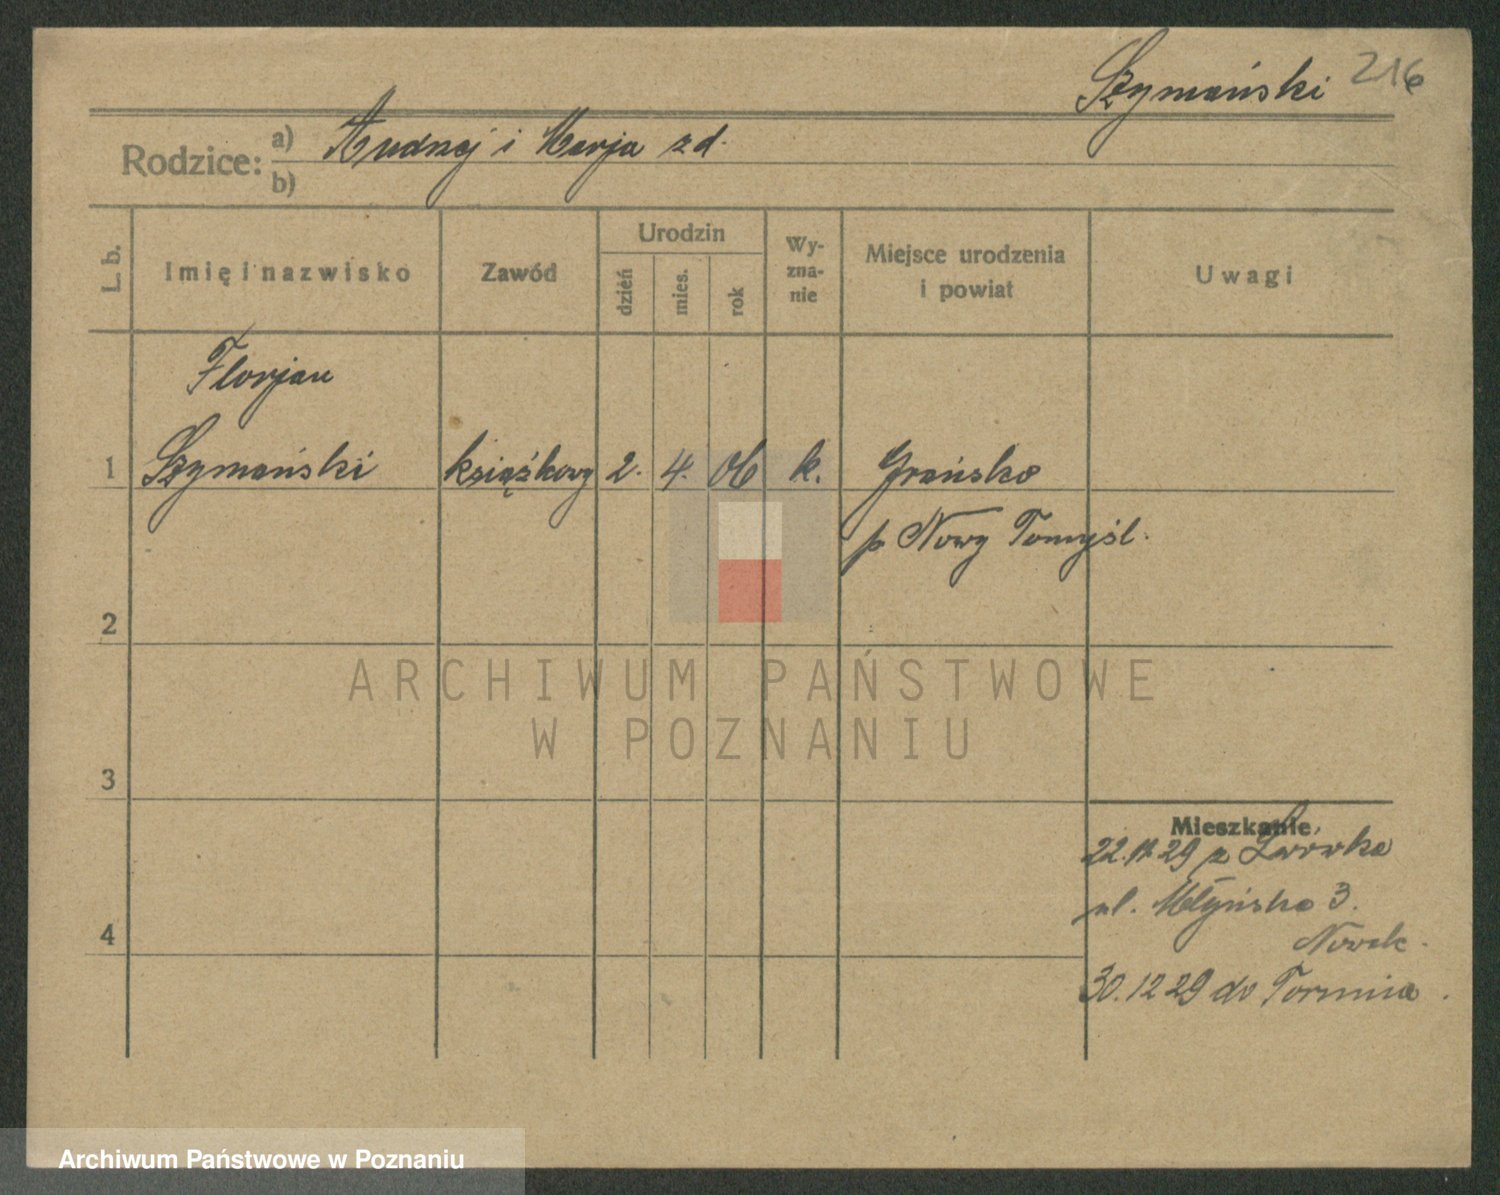 Szymański 216
Rodzice: a) Andrzej i Marja zd.
b)
L. b. Imię i nazwisko Zawód Urodzin dzień mies. rok Wyzna-nie Miejsce urodzenia i powiat Uwagi
Florjan
1 Szymański książkowy 2. 4. 06 k. Grońsko
p Nowy Tomyśl.
2
ARCHIWUM PAŃSTWOWE
W POZNANIU
3
Mieszkanie
29 z Lwówka
4 ul. Młyńska 3.
Nowak.
30.12 29 do Torunia.
Archiwum Państwowe w Poznaniu